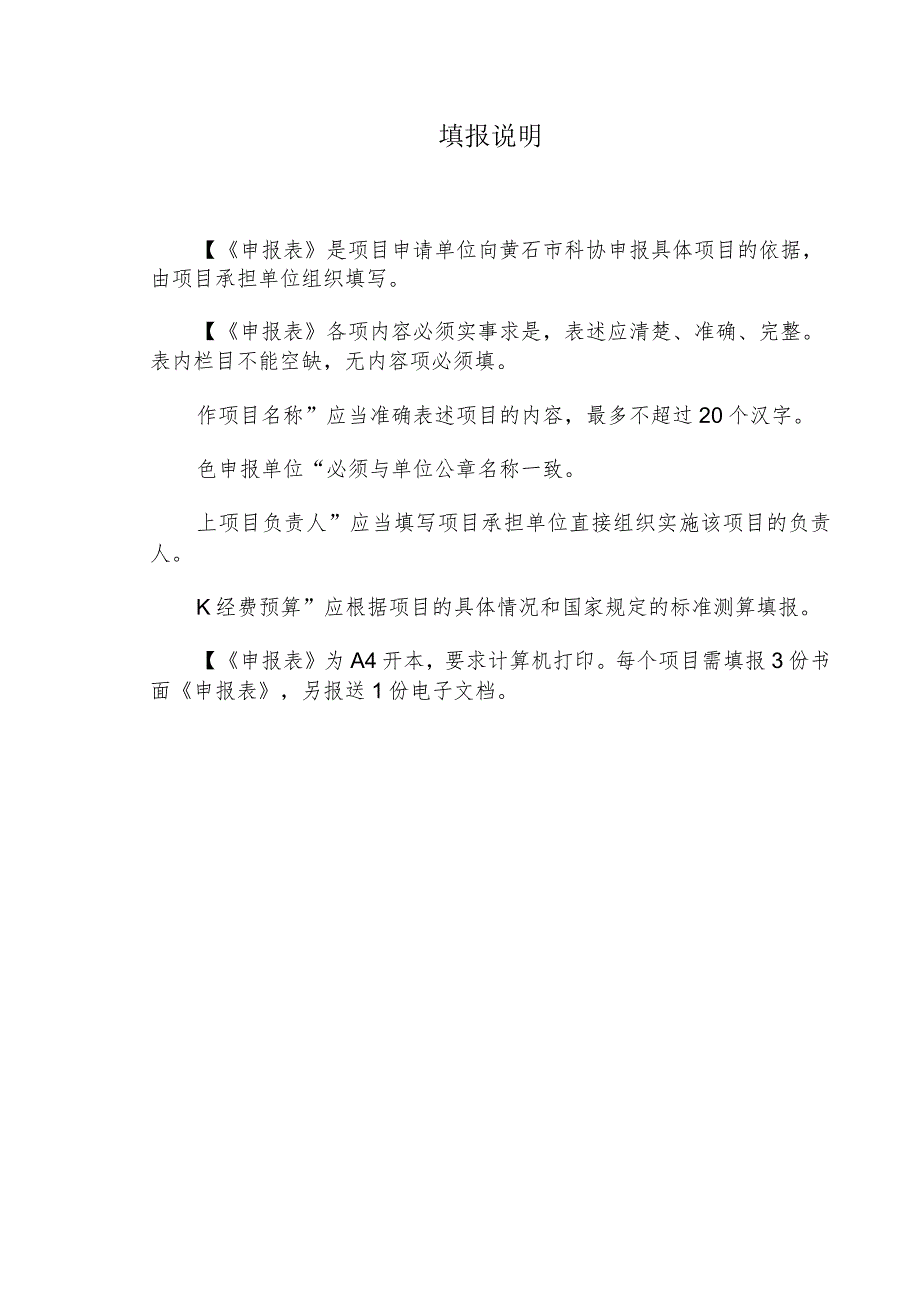 填报说明
【《申报表》是项目申请单位向黄石市科协申报具体项目的依据，
由项目承担单位组织填写。
【《申报表》各项内容必须实事求是，表述应清楚、准确、完整。
表内栏目不能空缺，无内容项必须填。
作项目名称”应当准确表述项目的内容，最多不超过20个汉字。
色申报单位“必须与单位公章名称一致。
上项目负责人”应当填写项目承担单位直接组织实施该项目的负责
人。
K经费预算”应根据项目的具体情况和国家规定的标准测算填报。
【《申报表》为A4开本，要求计算机打印。每个项目需填报3份书
面《申报表》，另报送1份电子文档。